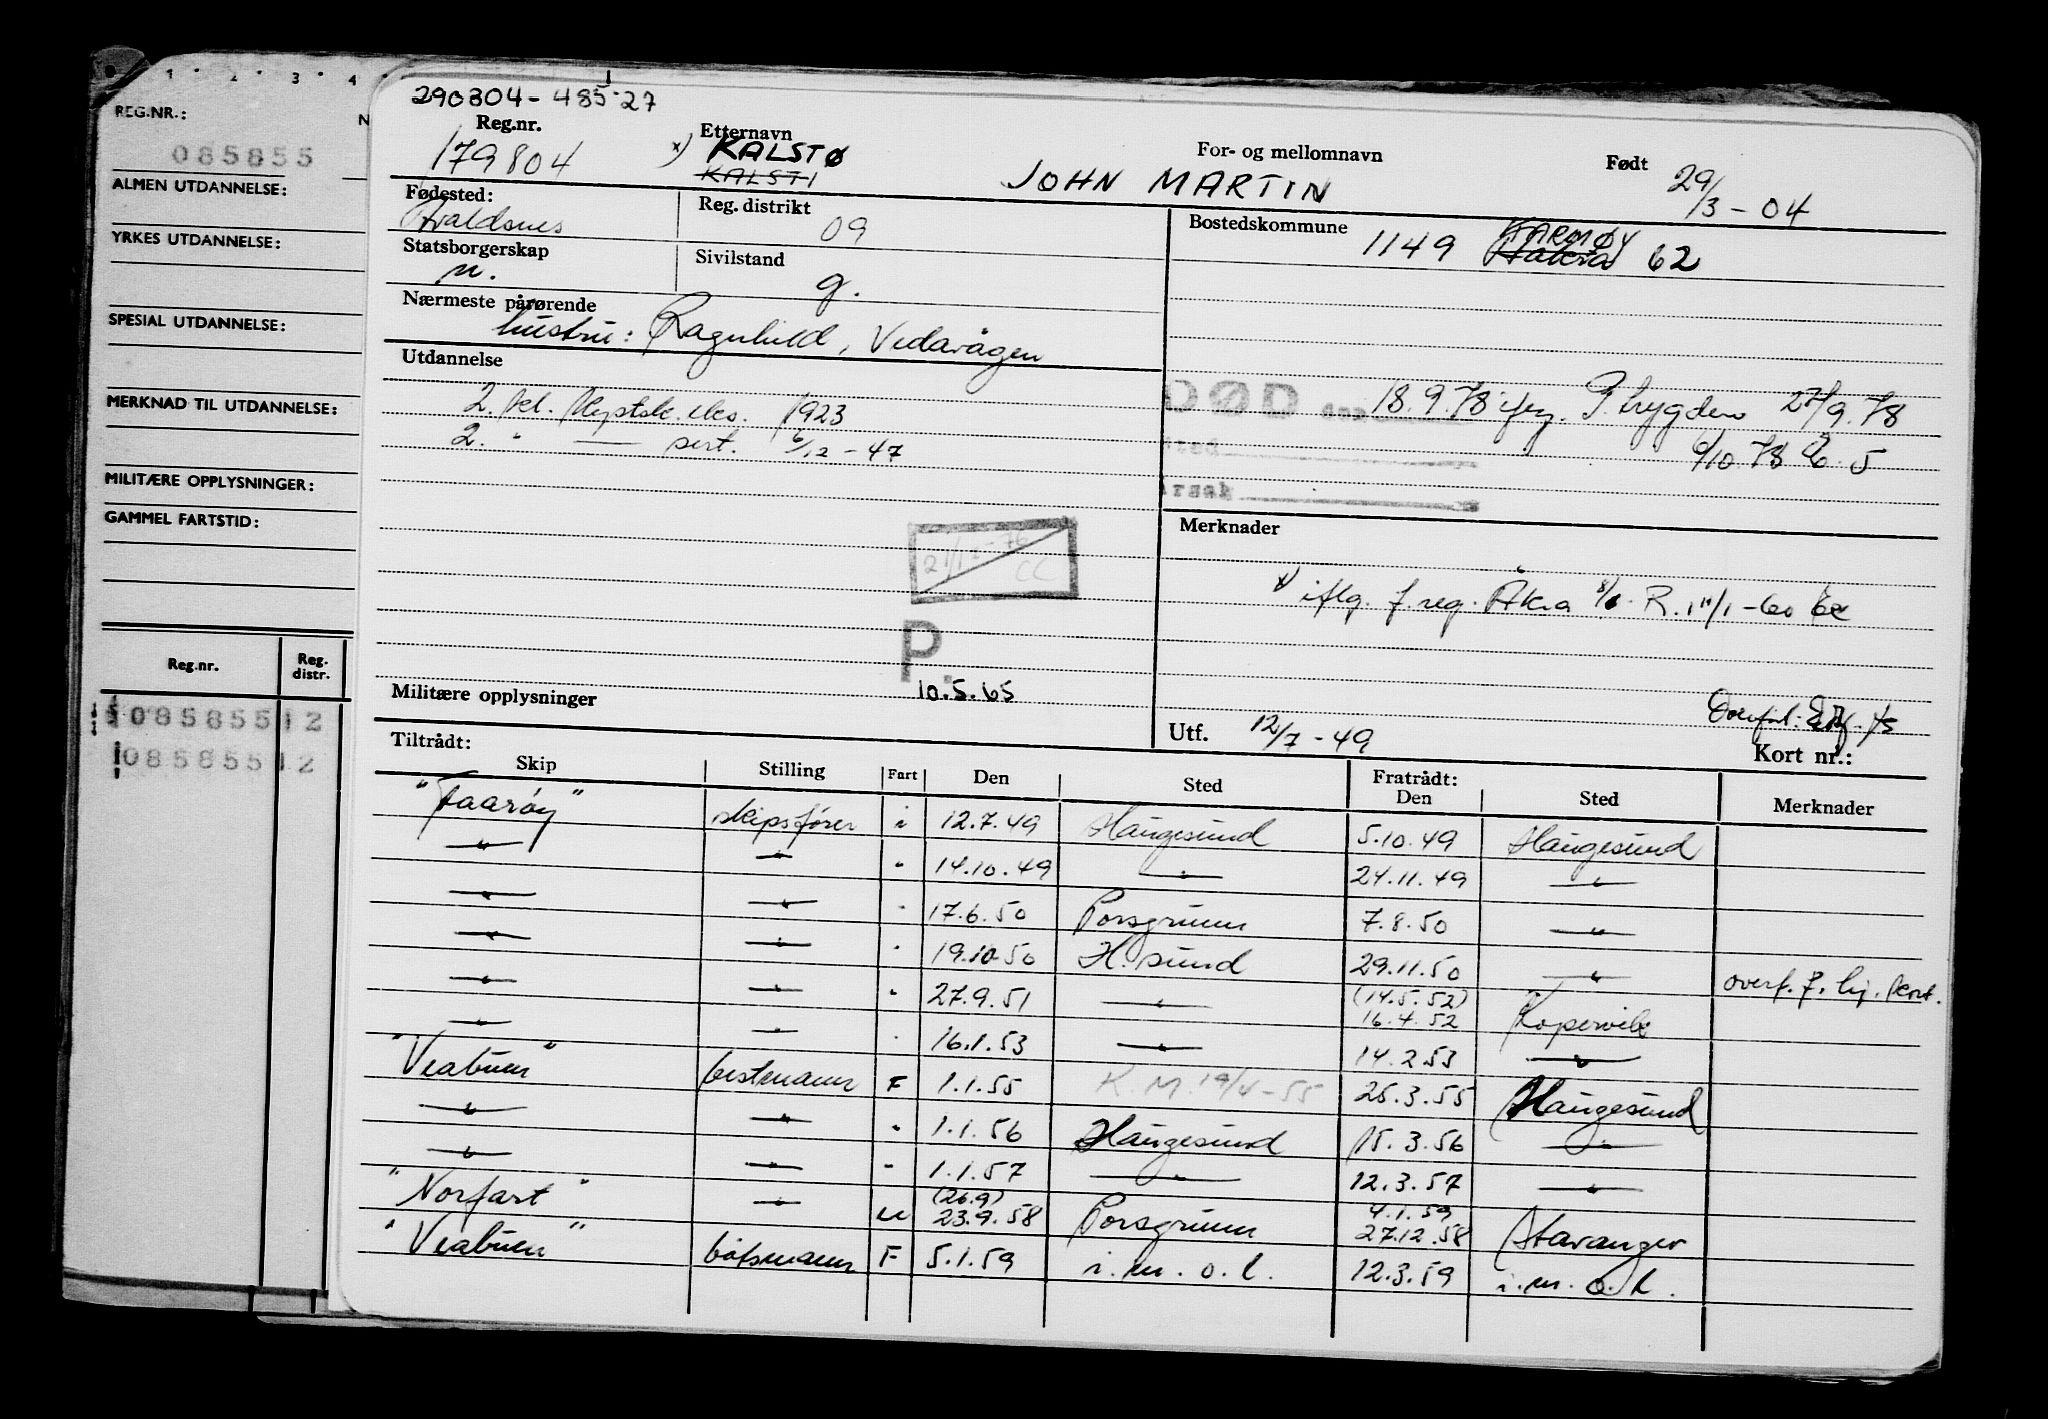 1 · 2 · 3 · 4
REG.NR.:
N
085855
ALMEN UTDANNELSE:
YRKES UTDANNELSE:
SPESIAL UTDANNELSE:
MERKNAD TIL UTDANNELSE:
MILITÆRE OPPLYSNINGER:
GAMMEL FARTSTID:
Reg.nr. Reg. distr.
085855 12
085855 12
290304-48527
Reg.nr. Etternavn For- og mellomnavn Født
179804 x) KALSTØ JOHN MARTIN 29/3-04
KALSTI
Fødested: Reg. distrikt Bostedskommune
Avaldsnes 09 1149 KARMØY 62
Statsborgerskap Sivilstand
n. g.
Nærmeste pårørende
hustru: Ragnhild, Vedavågen
Utdannelse
2. kl. kystsk. eks. 1923
2. " — sert. 6/12-47
DØD den 18.9.78 ifg. P. trygden 27/9.78
Sted 6/10.78
Årsak
21/12-76 CC
P.
10.5.65
Merknader
x) iflg. f.reg. Åkra R. 11/1-60
Militære opplysninger
Utf. 12/7-49
Kort nr.:
Tiltrådt: Fratrådt:
Skip Stilling Fart Den Sted Den Sted Merknader
"Faarøy" skipsfører i 12.7.49 Haugesund 5.10.49 Haugesund
—"— —"— " 14.10.49 —"— 24.11.49 —"—
—"— —"— " 17.6.50 Porsgrunn 7.8.50 —"—
—"— —"— " 19.10.50 H.sund 29.11.50 —"— overf. f. lign. kort.
—"— —"— " 27.9.51 —"— (14.5.52) 16.4.52 Kopervik
—"— —"— " 16.1.53 —"— 14.2.53 —"—
"Veabuen" bestmann F 1.1.55 K.M. 19/4-55 25.3.55 Haugesund
—"— —"— " 1.1.56 Haugesund 15.3.56 —"—
—"— —"— " 1.1.57 —"— 12.3.57 —"—
"Norfart" —"— u (26.9) 23.9.58 Porsgrunn 4.1.59 27.12.58 Stavanger
"Veabuen" båtsmann F 5.1.59 i.m.o.l. 12.3.59 i.m.o.l.